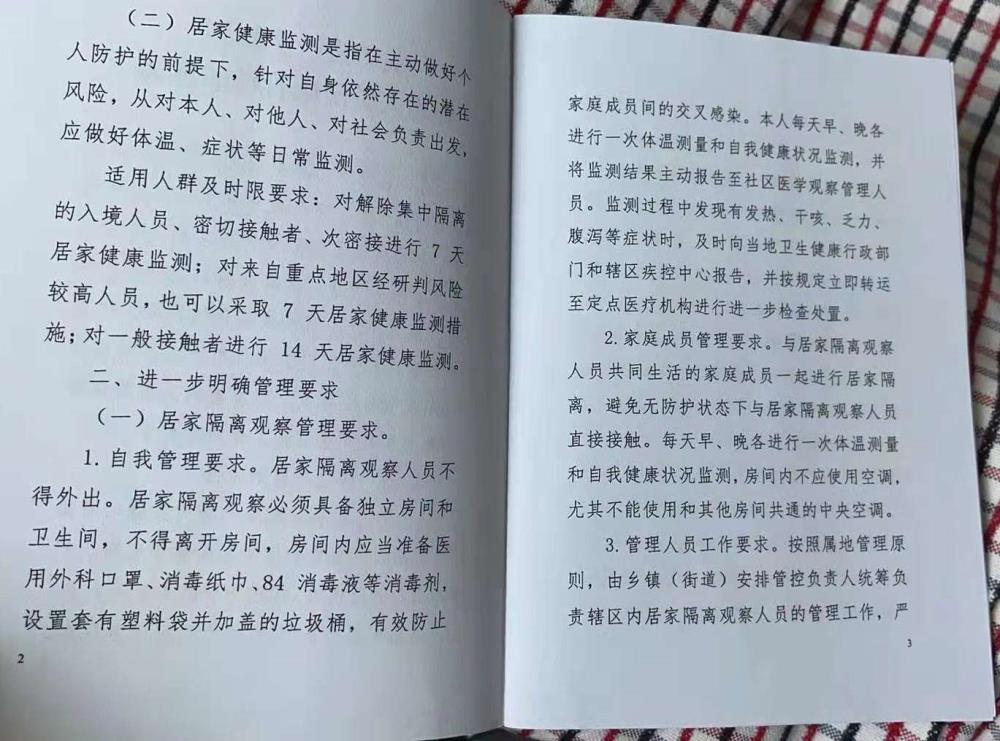 （二）居家健康监测是指在主动做好个
人防护的前提下，针对自身依然存在的潜在
风险，从对本人、对他人、对社会负责出发，
应做好体温、症状等日常监测。
适用人群及时限要求：对解除集中隔离
的入境人员、密切接触者、次密接进行 7 天
居家健康监测；对来自重点地区经研判风险
较高人员，也可以采取 7 天居家健康监测措
施；对一般接触者进行 14 天居家健康监测。
二、进一步明确管理要求
（一）居家隔离观察管理要求。
1.自我管理要求。居家隔离观察人员不
得外出。居家隔离观察必须具备独立房间和
卫生间，不得离开房间，房间内应当准备医
用外科口罩、消毒纸巾、84 消毒液等消毒剂，
设置套有塑料袋并加盖的垃圾桶，有效防止
2
家庭成员间的交叉感染。本人每天早、晚各
进行一次体温测量和自我健康状况监测，并
将监测结果主动报告至社区医学观察管理人
员。监测过程中发现有发热、干咳、乏力、
腹泻等症状时，及时向当地卫生健康行政部
门和辖区疾控中心报告，并按规定立即转运
至定点医疗机构进行进一步检查处置。
2.家庭成员管理要求。与居家隔离观察
人员共同生活的家庭成员一起进行居家隔
离，避免无防护状态下与居家隔离观察人员
直接接触。每天早、晚各进行一次体温测量
和自我健康状况监测，房间内不应使用空调，
尤其不能使用和其他房间共通的中央空调。
3.管理人员工作要求。按照属地管理原
则，由乡镇（街道）安排管控负责人统筹负
责辖区内居家隔离观察人员的管理工作，严
3